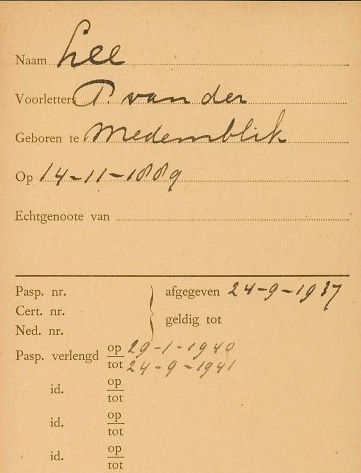 Naam Lee
Voorletters P. van der
Geboren te Medemblik
Op 14-11-1889
Echtgenoote van
Pasp. nr. afgegeven 24-9-1937
Cert. nr.
geldig tot
Ned. nr.
Pasp. verlengd op 29-1-1940
tot 24-9-1941
id. op
tot
id. op
tot
id. op
tot